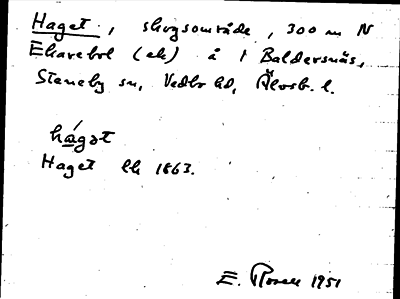 Haget, skogsområde, 300 m N
Ekarebol (ek) å f Baldersnäs,
Steneby sn, Vedbo hd, Älvsb. l.
hágət
Haget lk 1863.
E. Rosell 1951